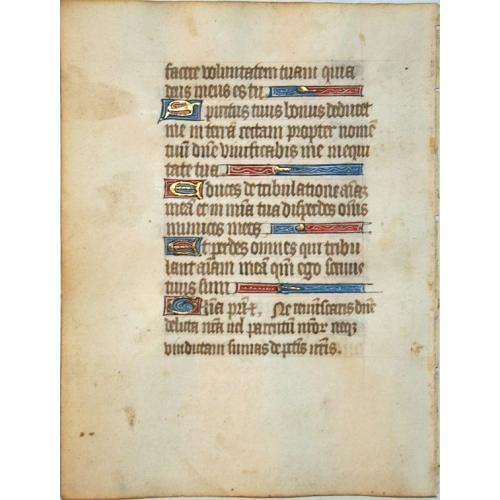 facere voluntatem tuam quia
deus meus es tu
Spiritus tuus bonus deducet
me in terrā rectam propter nomē
tuū dn̄e vivificabis me in equi
tate tua
Educes de tribulatione aīaȝ
meā et in mīa tua disperdes oīs
inimicos meos
Et perdes omnes qui tribu
lant aīam meā qm̄ ego servus
tuus sum
Glīa pr̄i. Ne reminiscaris dn̄e
delicta nr̄a vel parentū nr̄or neqȝ
vindictam sumas de pc̄tis nr̄is.